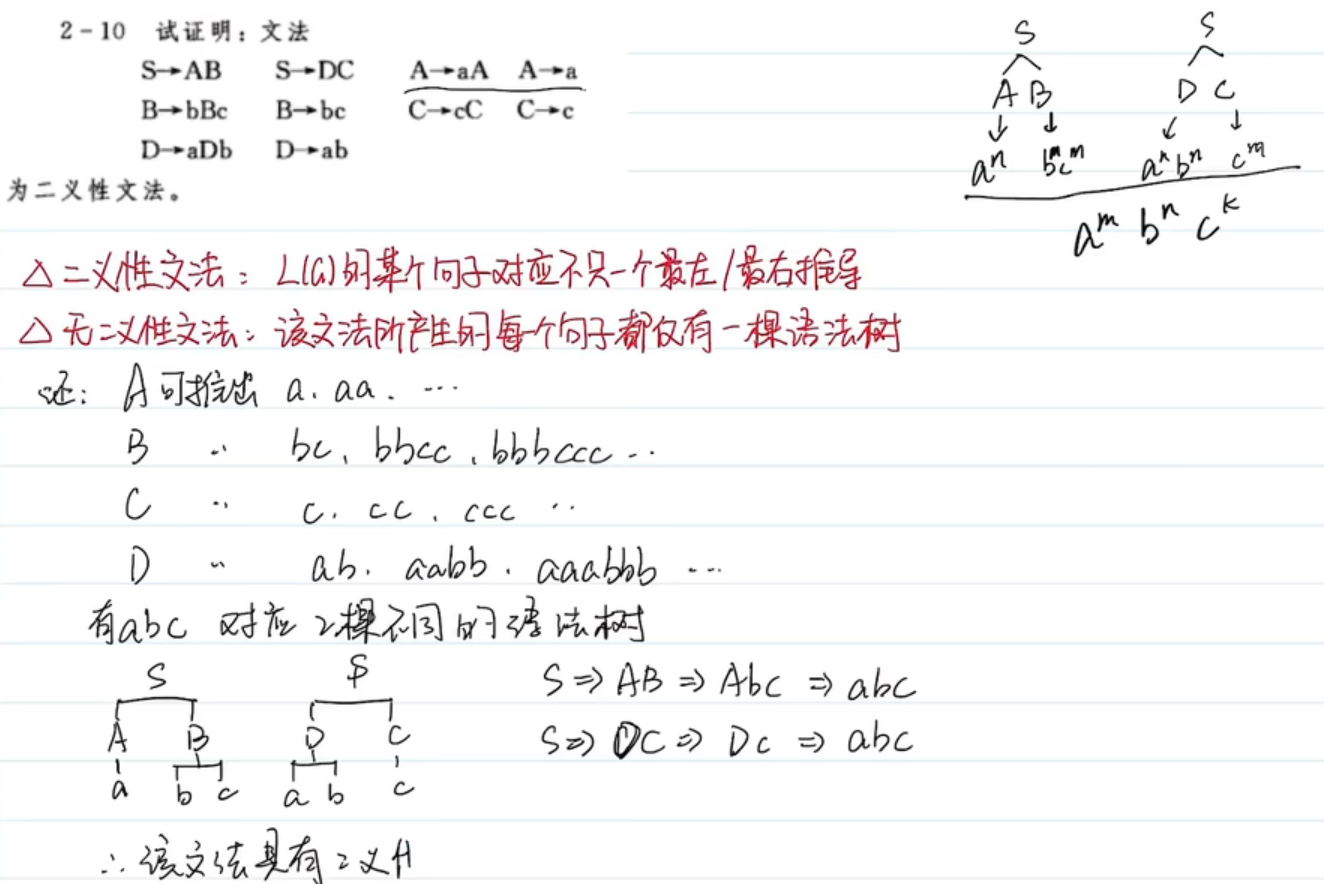 2-10 试证明：文法
S→AB S→DC A→aA A→a
B→bBc B→bc C→cC C→c
D→aDb D→ab
为二义性文法。
S S
A B D C
↓ ↓ ↙ ↓
aⁿ bᵐcᵐ aⁿbⁿ cᵐ
aᵐ bⁿ cᵏ
△二义性文法：L(G)的某个句子对应不只一个最左/最右推导
△无二义性文法：该文法所产生的每个句子都仅有一棵语法树
证：A可推出 a、aa、…
B 〃 bc、bbcc、bbbccc…
C 〃 c、cc、ccc…
D 〃 ab、aabb、aaabbb…
有abc 对应2棵不同的语法树
S S
A B D C
a b c a b c
S⇒AB⇒Abc⇒abc
S⇒DC⇒Dc⇒abc
∴该文法具有二义性